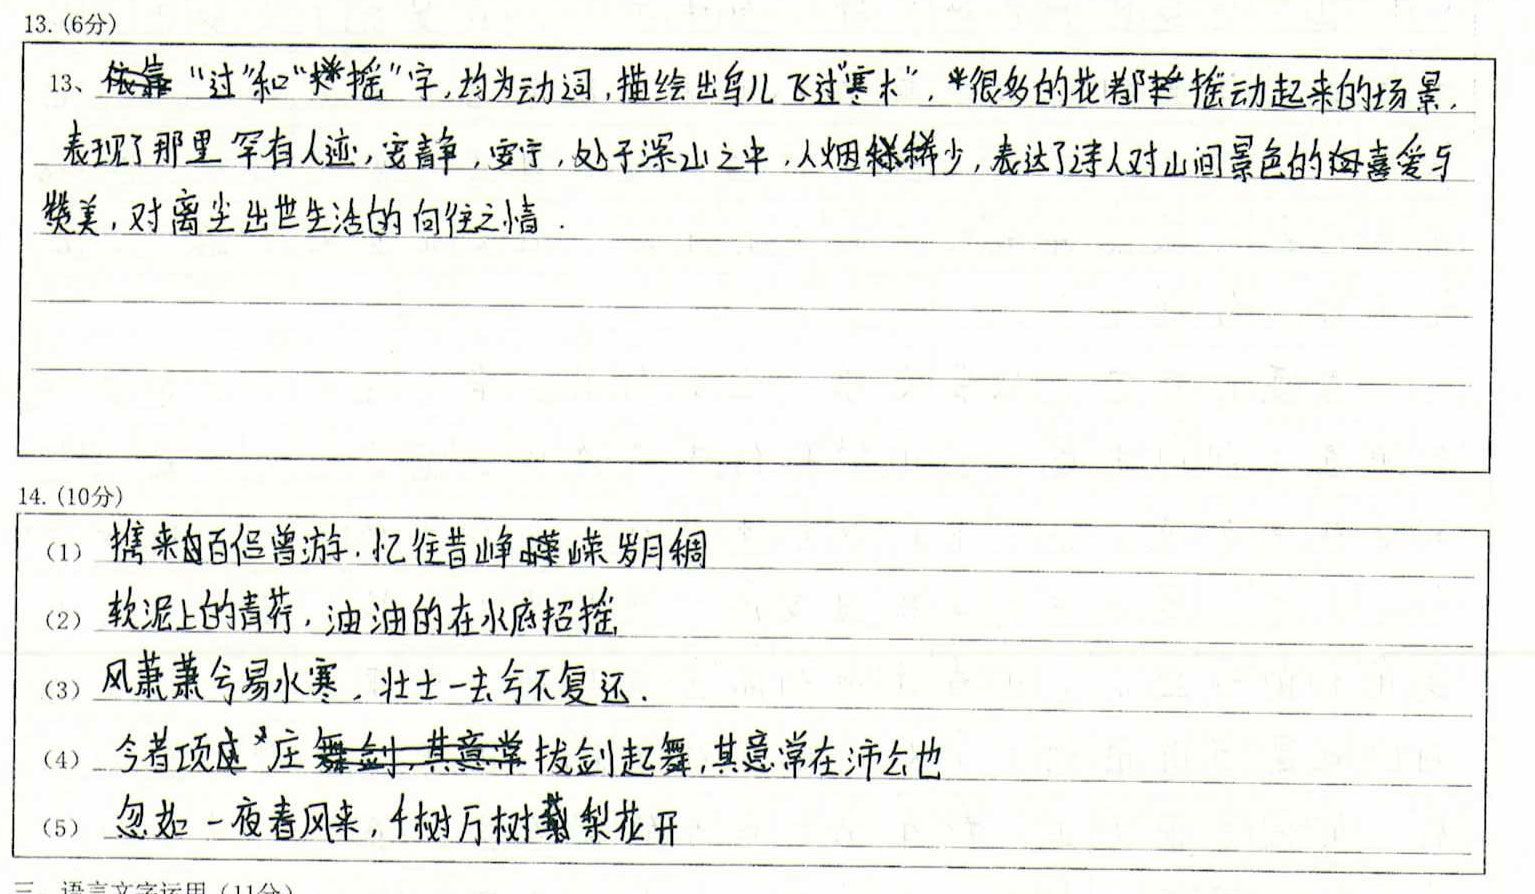 13. (6分)
13、"过"和"摇"字,均为动词,描绘出鸟儿飞过"寒木",很多的花都摇动起来的场景,
表现了那里罕有人迹,安静,安宁,处于深山之中,人烟稀少,表达了诗人对山间景色的喜爱与
赞美,对离尘出世生活的向往之情.
14. (10分)
(1) 携来百侣曾游.忆往昔峥嵘岁月稠
(2) 软泥上的青荇,油油的在水底招摇
(3) 风萧萧兮易水寒,壮士一去兮不复还.
(4) 今者项庄拔剑起舞,其意常在沛公也
(5) 忽如一夜春风来,千树万树梨花开
三、语言文字运用(11分)